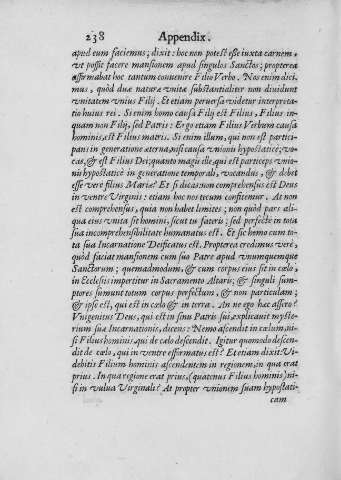 238 Appendix.
apud eum faciemus; dixit: hoc non potest esse iuxta carnem,
vt possit facere mansionem apud singulos Sanctos; propterea
affirmabat hoc tantum conuenire Filio Verbo. Nos enim dici-
mus, quòd duæ naturæ vnitæ substantialiter non diuidunt
vnitatem vnius Filij. Et etiam peruersa videtur interpreta-
tio huius rei. Si enim homo causa Filij est Filius, Filius in-
quam non Filij, sed Patris: Ergo etiam Filius Verbum causa
hominis, est Filius matris. Si enim illum, qui non est partici-
pans in generatione æterna, nisi causa vnionis hypostaticè, vo-
cas, & est Filius Dei; quanto magis ille, qui est particeps vnio-
nis hypostaticè in generatione temporali, vocandus, & debet
esse verè filius Mariæ? Et si dicas non comprehensus est Deus
in ventre Virginis: etiam hoc nos tecum confitemur. At non
est comprehensus, quia non habet limites; non quòd pars ali-
qua eius vnita sit homini, sicut tu fateris: sed perfectè in tota
sua incomprehensibilitate humanatus est. Et sic homo cum to-
ta sua Incarnatione Deificatus est. Propterea credimus verè,
quòd faciat mansionem cum suo Patre apud vnumquemque
Sanctorum; quemadmodum, & cum corpus eius sit in cælo,
in Ecclesijs impertitur in Sacramento Altaris; & singuli sum-
ptores sumunt totum corpus perfectum, & non particulam;
& ipse est, qui est in cælo & in terra. An ne ego hæc assero?
Vnigenitus Deus, qui est in sinu Patris sui, explicauit myste-
rium suæ Incarnationis, dicens: Nemo ascendit in cælum, ni-
si Filius hominis, qui de cælo descendit. Igitur quomodo descen-
dit de cælo, qui in ventre efformatus est? Et etiam dixit: Vi-
debitis Filium hominis ascendentem in regionem, in qua erat
prius. In qua regione erat prius, (quatenus Filius hominis) ni-
si in vulua Virginali? At propter vnionem suam hypostati-
cam